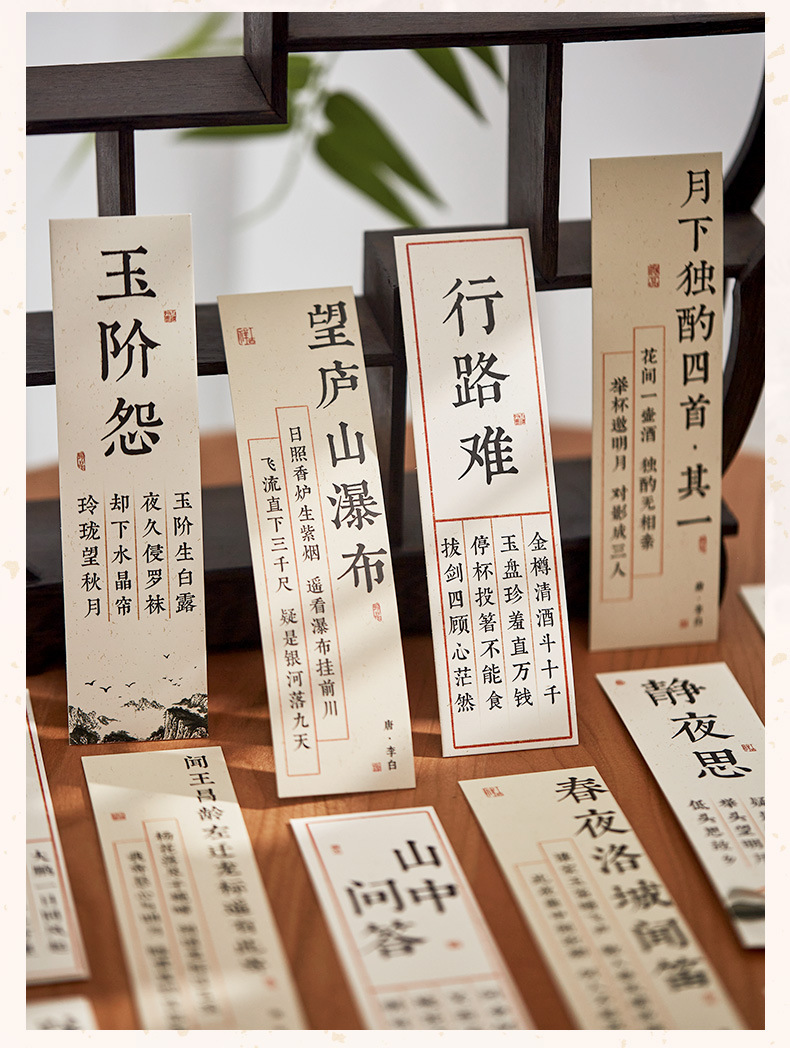 玉阶怨
玉阶生白露
夜久侵罗袜
却下水晶帘
玲珑望秋月
望庐山瀑布
日照香炉生紫烟 遥看瀑布挂前川
飞流直下三千尺 疑是银河落九天
唐·李白
行路难
金樽清酒斗十千
玉盘珍羞直万钱
停杯投箸不能食
拔剑四顾心茫然
月下独酌四首·其一
花间一壶酒 独酌无相亲
举杯邀明月 对影成三人
唐·李白
静夜思
举头望明月
低头思故乡
闻王昌龄左迁龙标遥有此寄
山中
问答
春夜洛城闻笛
大鹏一日同风起